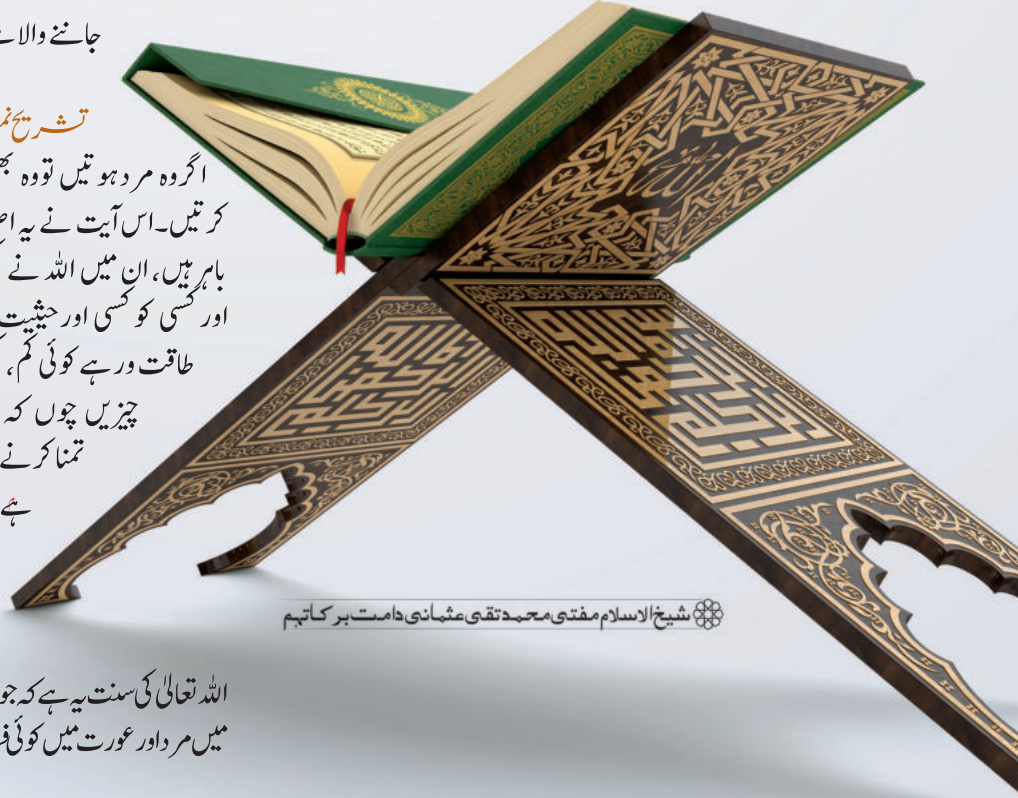 جاننے والا ہے
تشریح نمبر
اگر وہ مرد ہوتیں تو وہ بھی
کرتیں۔ اس آیت نے یہ
باہر ہیں، ان میں اللہ نے
اور کسی کو کسی اور حیثیت
طاقت ور ہے کوئی کم،
چیزیں چوں کہ
تمنا کرنے
ہے
شیخ الاسلام مفتی محمد تقی عثمانی دامت برکاتہم
اللہ تعالیٰ کی سنت یہ ہے کہ جو
میں مرد اور عورت میں کوئی